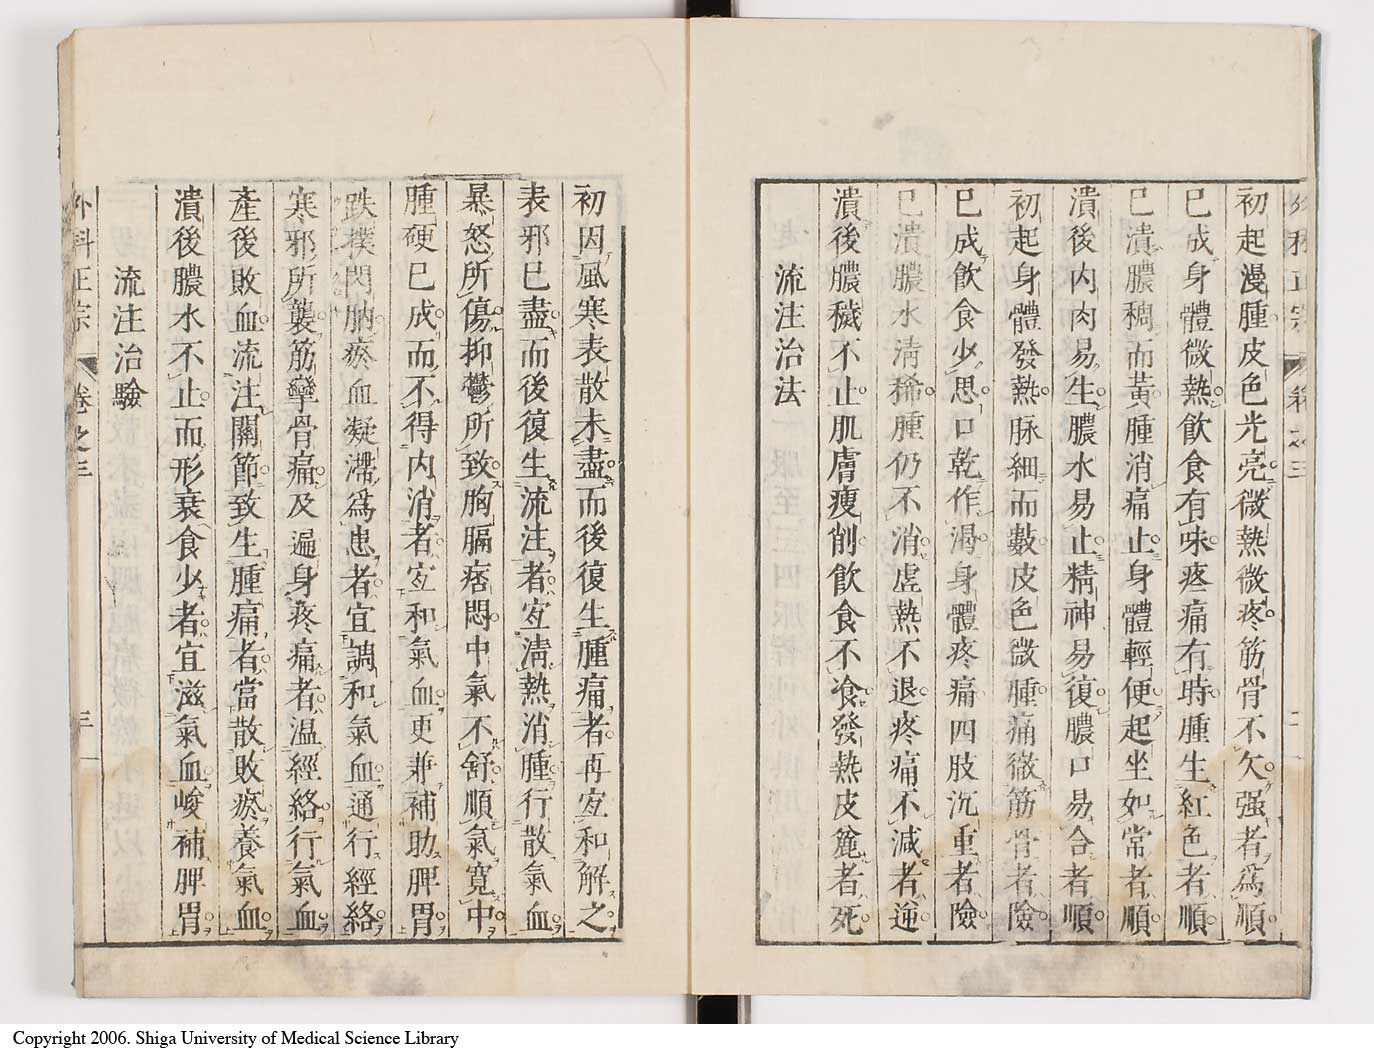 初起漫腫皮色光亮微熱微疼筋骨不欠强者爲順
已成身體微熱飲食有味疼痛有時腫生紅色者順
已潰膿稠而黃腫消痛止身體輕便起坐如常者順
潰後内肉易生膿水易止精神易復膿口易合者順
初起身體發熱脉細而數皮色微腫痛徹筋骨者險
已成飲食少思口乾作渴身體疼痛四肢沉重者險
已潰膿水淸稀腫仍不消虛熱不退疼痛不減者逆
潰後膿穢不止肌膚瘦削飲食不飡發熱皮麄者死
流注治法
初因風寒表散未盡而後復生腫痛者再宜和解之
表邪已盡而後復生流注者宜淸熱消腫行散氣血
暴怒所傷抑鬱所致胸膈痞悶中氣不舒順氣寬中
腫硬已成而不得内消者宜和氣血更兼補助脾胃
跌撲閃肭瘀血凝滯爲患者宜調和氣血通行經絡
寒邪所襲筋攣骨痛及遍身疼痛者温經絡行氣血
產後敗血流注關節致生腫痛者當散敗瘀養氣血
潰後膿水不止而形衰食少者宜滋氣血峻補脾胃
流注治驗
外科正宗 卷之三 三
Copyright 2006. Shiga University of Medical Science Library